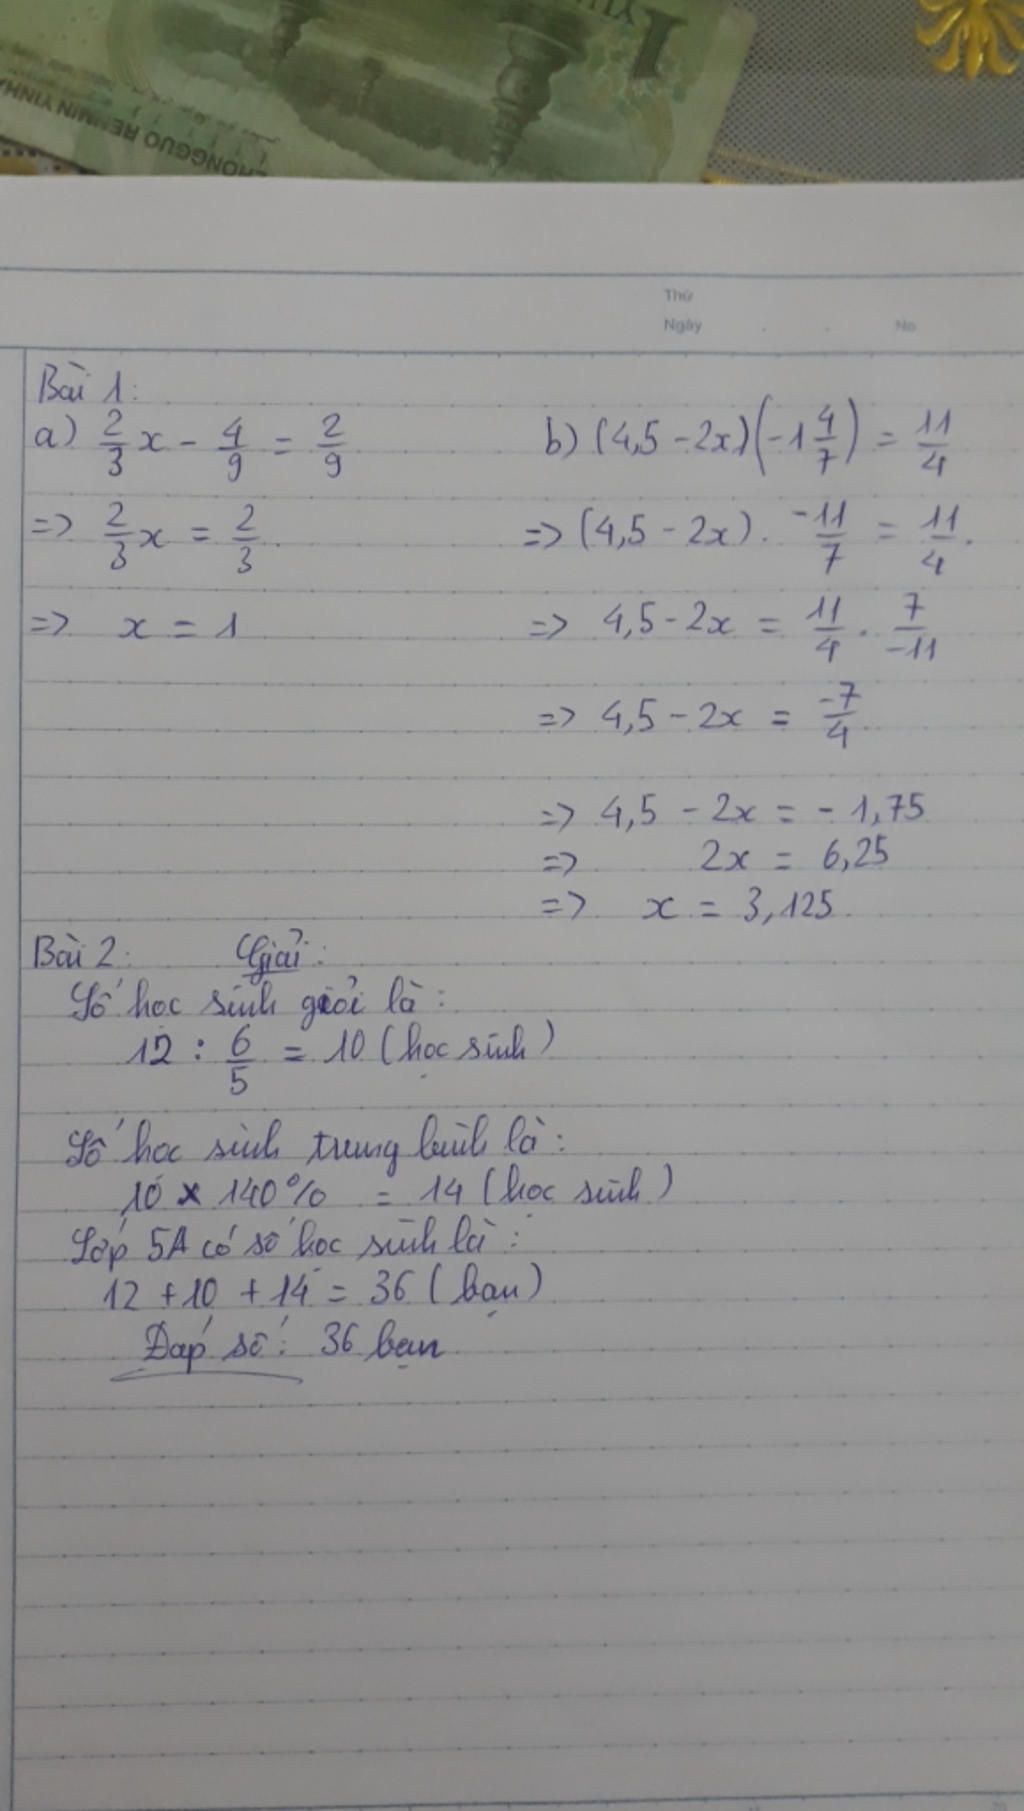 1
YI YUAN
ZHONGGUO RENMIN YINHANG
Thứ
Ngày . . No
Bài 1:
a) 2/3 x - 4/9 = 2/9
=> 2/3 x = 2/3.
=> x = 1
b) (4,5 - 2x)(-1 4/7) = 11/4
=> (4,5 - 2x) . -11/7 = 11/4.
=> 4,5 - 2x = 11/4 . 7/-11
=> 4,5 - 2x = -7/4
=> 4,5 - 2x = - 1,75
=> 2x = 6,25
=> x = 3,125.
Bài 2: Giải:
Số học sinh giỏi là:
12 : 6/5 = 10 (học sinh)
Số học sinh trung bình là:
10 x 140% = 14 (học sinh)
Lớp 5A có số học sinh là:
12 + 10 + 14 = 36 (bạn)
Đáp số: 36 bạn